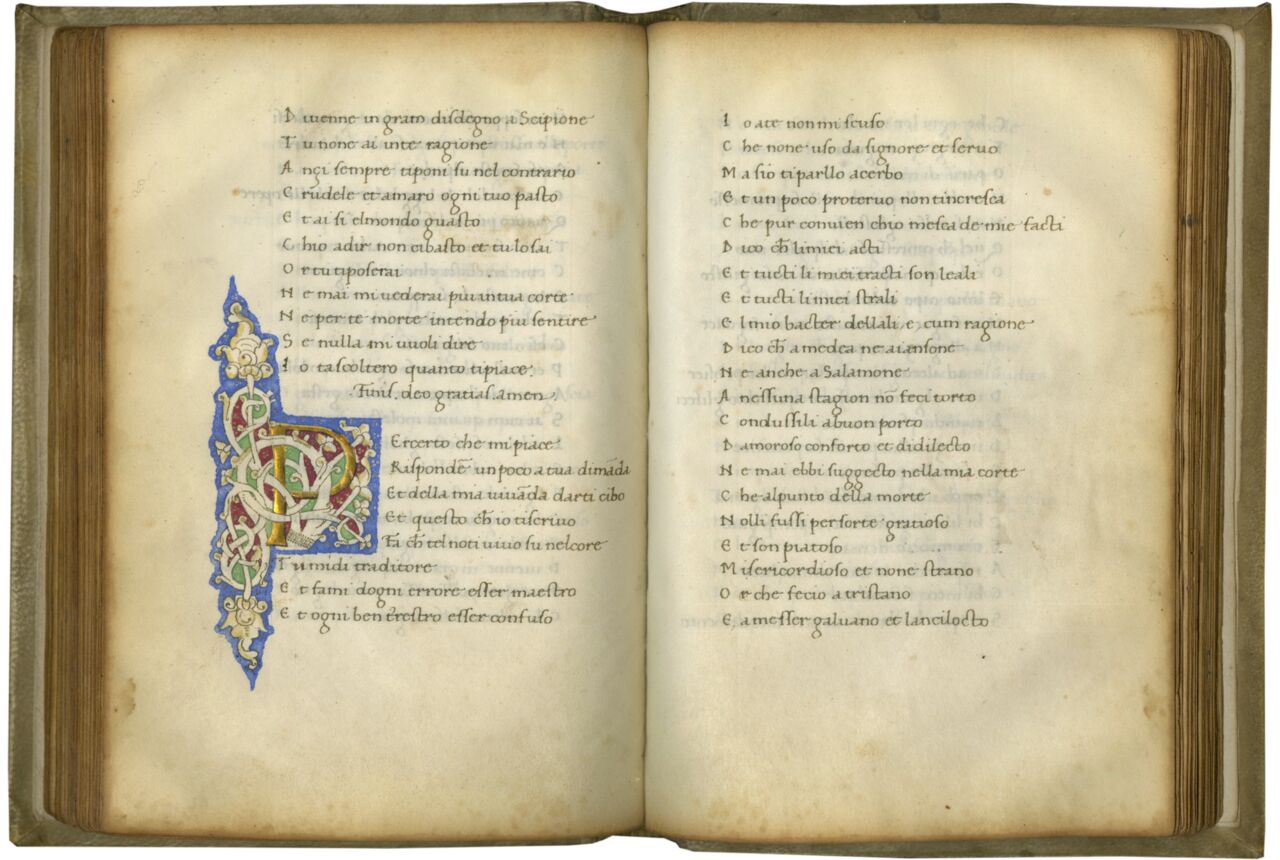 D iuenne in gram disdegno a Scipione
T u none ai inte ragione
A nçi sempre tiponi su nel contrario
C rudele et amaro ogni tuo pasto
E t ai si elmondo guasto
C hio adir non cibasto et tu lo sai
O r tu tiposerai
N e mai mi uederai piu in tua corte
N e per te morte intendo piu sentire
S e nulla mi uuoli dire
I o tascoltero quanto ti piace.
Finis. deo gratias. amen.
P Ercerto che mi piace
Rispondē un poco a tua dimāda
Et della mia uiuāda darti cibo
Et questo cħ io tiscriuo
Fa cħ tel noti uiuo su nelcore
T u midi traditore
E t fami dogni errore esser maestro
E t ogni ben terrestro esser confuso
I o ate non mi scuso
C he none uso da signore et seruo
M a sio ti parllo acerbo
E t un poco proteruo non tincresca
C he pur conuien chio mesca de mie facti
D ico cħ li miei acti
E t tucti li miei tracti son leali
E t tucti li miei strali
E l mio bacter dellali, e, cum ragione
D ico cħ a medea ne a iansone
N e anche a Salamone
A nessuna stagion nō feci torto
C ondussili a buon porto
D amoroso conforto et di dilecto
N e mai ebbi suggecto nella mia corte
C he alpunto della morte
N olli fussi per sorte gratioso
E t son piatoso
M isericordioso et none strano
O r che fecio a tristano
E, a messer galuano et lancilocto